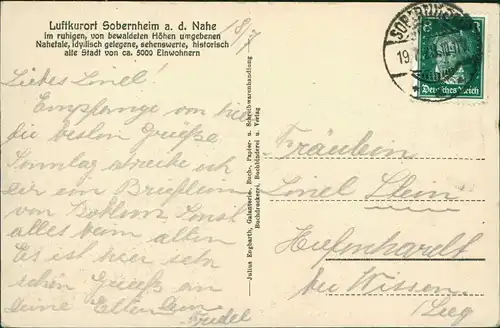 Luftkurort Sobernheim a. d. Nahe
im ruhigen, von bewaldeten Höhen umgebenen
Nahetale, idyllisch gelegene, sehenswerte, historisch
alte Stadt von ca. 5000 Einwohnern
18/7
Liebes Linel!
Empfange von hier
die besten Grüße
Sonntag schicke ich
dir ein Brieflein
von Sonst
alles beim alten
Es ist hier sehr
schön Grüße an
deine Eltern Dein
Friedel
Julius Engbarth, Galanterie-, Buch-, Papier- u. Schreibwarenhandlung
Buchdruckerei, Buchbinderei u. Verlag
19
3
Deutsches Reich
Fräulein
Linel
bei Wissen
/Sieg